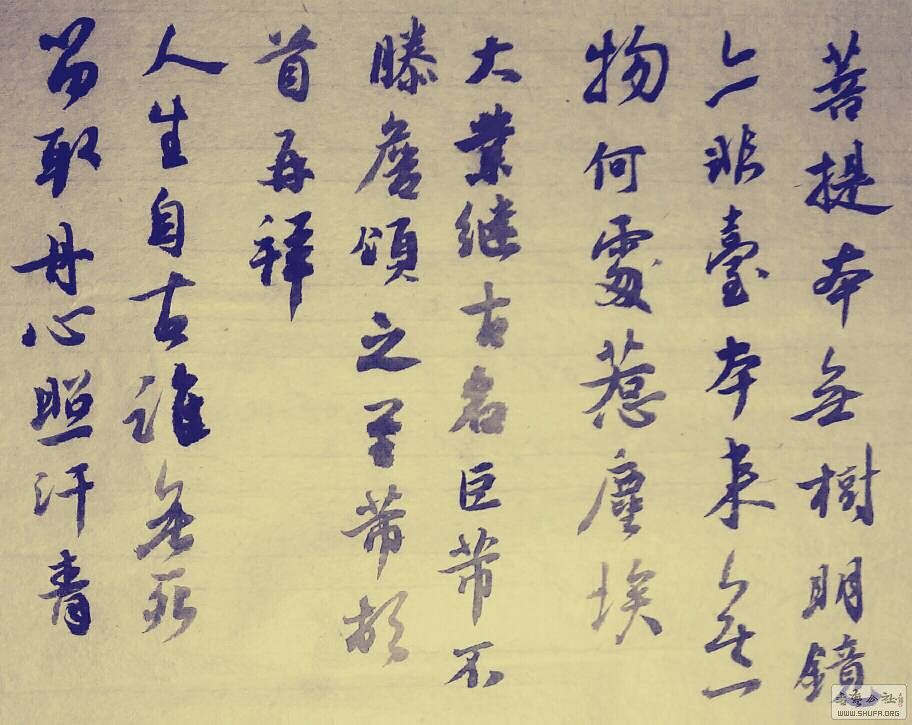 菩提本無樹明鏡
亦非臺本来無一
物何處惹塵埃
大業继古名臣芾不
勝詹頌之至芾頓
首再拜
人生自古誰無死
留取丹心照汗青
WWW.SHUFA.ORG